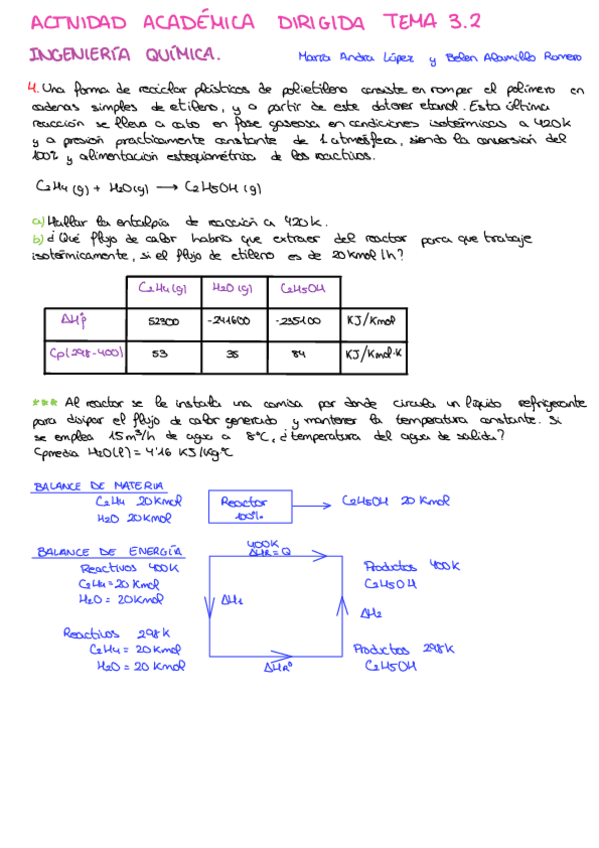 ACTIVIDAD ACADÉMICA DIRIGIDA TEMA 3.2
INGENIERÍA QUÍMICA. María Andra López y Belen Alamillo Romero
4. Una forma de reciclar plásticos de polietileno consiste en romper el polímero en
cadenas simples de etileno, y a partir de este obtener etanol. Esta última
reacción se lleva a cabo en fase gaseosa en condiciones isotérmicas a 420k
y a presión practicamente constante de 1 atmósfera, siendo la conversión del
100% y alimentación estequiométrica de los reactivos.
C2H4 (g) + H2O(g) → C2H5OH (g)
a) Hallar la entalpía de reacción a 420k.
b) ¿Qué flujo de calor habría que extraer del reactor para que trabaje
isotérmicamente, si el flujo de etileno es de 20kmol/h?
C2H4(g) H2O(g) C2H5OH
ΔHºf 52300 -241600 -235100 KJ/Kmol
Cp(298-400) 53 35 84 KJ/Kmol·K
*** Al reactor se le instala una camisa por donde circula un líquido refrigerante
para disipar el flujo de calor generado y mantener la temperatura constante. Si
se emplea 15m³/h de agua a 8ºC, ¿temperatura del agua de salida?
Cpmedia H2O(l) = 4'16 KJ/Kg·ºC
BALANCE DE MATERIA
C2H4 20Kmol
H2O 20Kmol
Reactor
100%
C2H5OH 20 Kmol
BALANCE DE ENERGÍA
Reactivos 400K
C2H4 = 20 Kmol
H2O = 20Kmol
400K
ΔHR = Q
Productos 400K
C2H5OH
ΔH1
ΔH2
Reactivos 298K
C2H4 = 20Kmol
H2O = 20 Kmol
ΔHRº
Productos 298K
C2H5OH